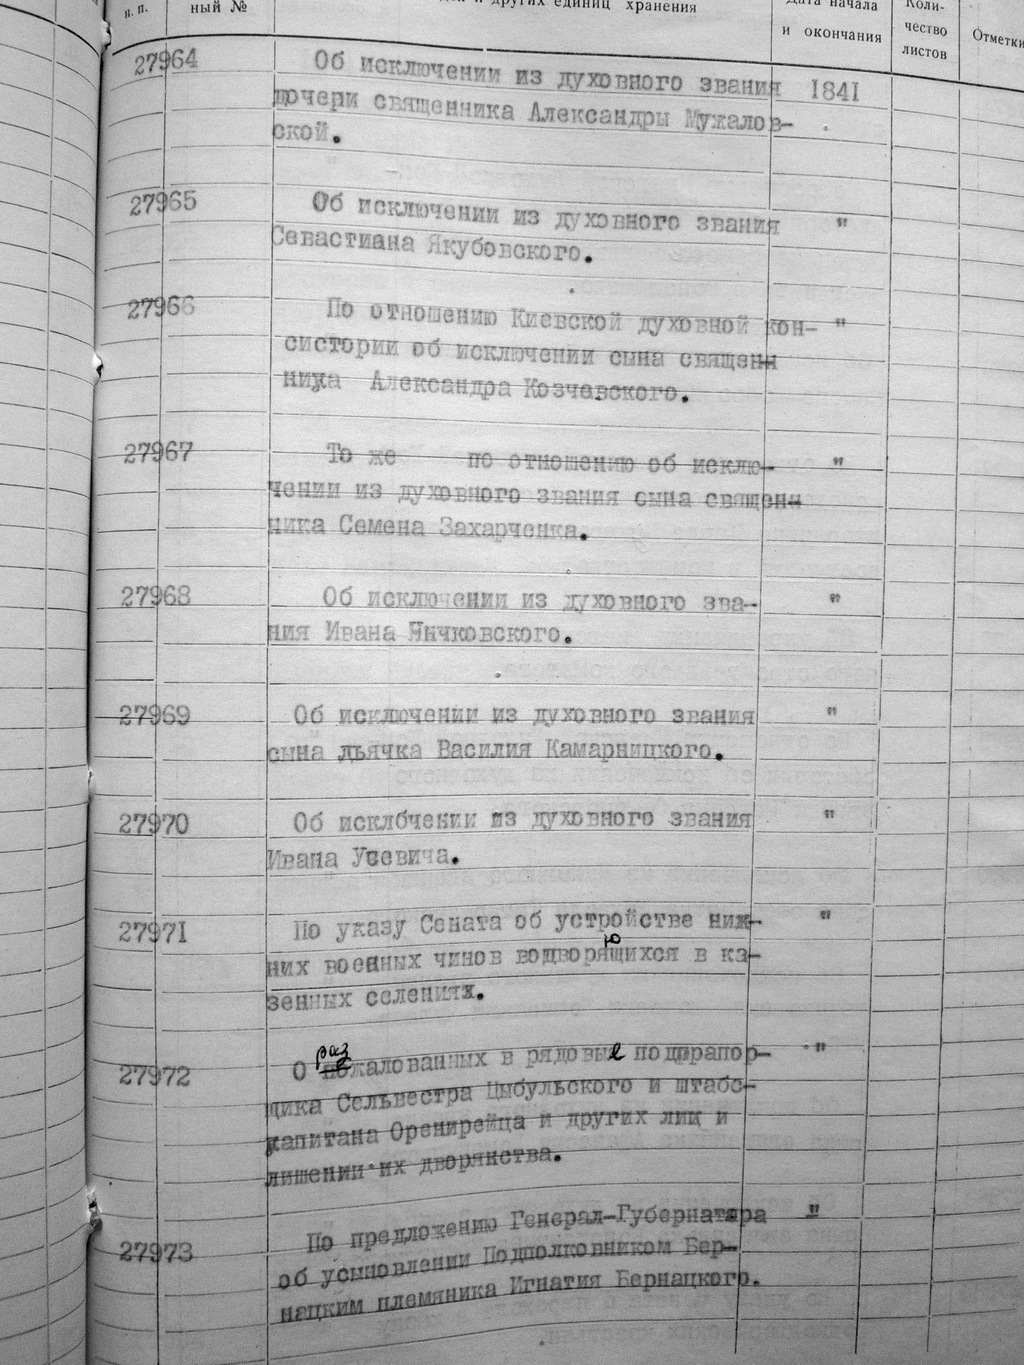 п. п. ный № и других единиц хранения Дата начала и окончания Коли-чество листов Отметки
27964 Об исключении из духовного звания 1841
дочери священника Александры Мухалов-
ской.
27965 Об исключении из духовного звания "
Севастиана Якубовского.
27966 По отношению Киевской духовной кон- "
систории об исключении сына священн
ника Александра Козчевского.
27967 То же по отношению об исклю- "
чении из духовного звания сына священн
ника Семена Захарченка.
27968 Об исключении из духовного зва- "
ния Ивана Яничковского.
27969 Об исключении из духовного звания "
сына дьячка Василия Камарницкого.
27970 Об исклбчении из духовного звания "
Ивана Усевича.
27971 По указу Сената об устройстве ниж- "
них военных чинов водворяющихся в ка-
зенных селениях.
27972 О разжалованных в рядовые подпрапор- "
щика Сельвестра Цыбульского и штабс-
капитана Оренирейца и других лиц и
лишении их дворянства.
27973 По предложению Генерал-Губернатора "
об усыновлении Подполковником Бер-
нацким племяника Игнатия Бернацкого.